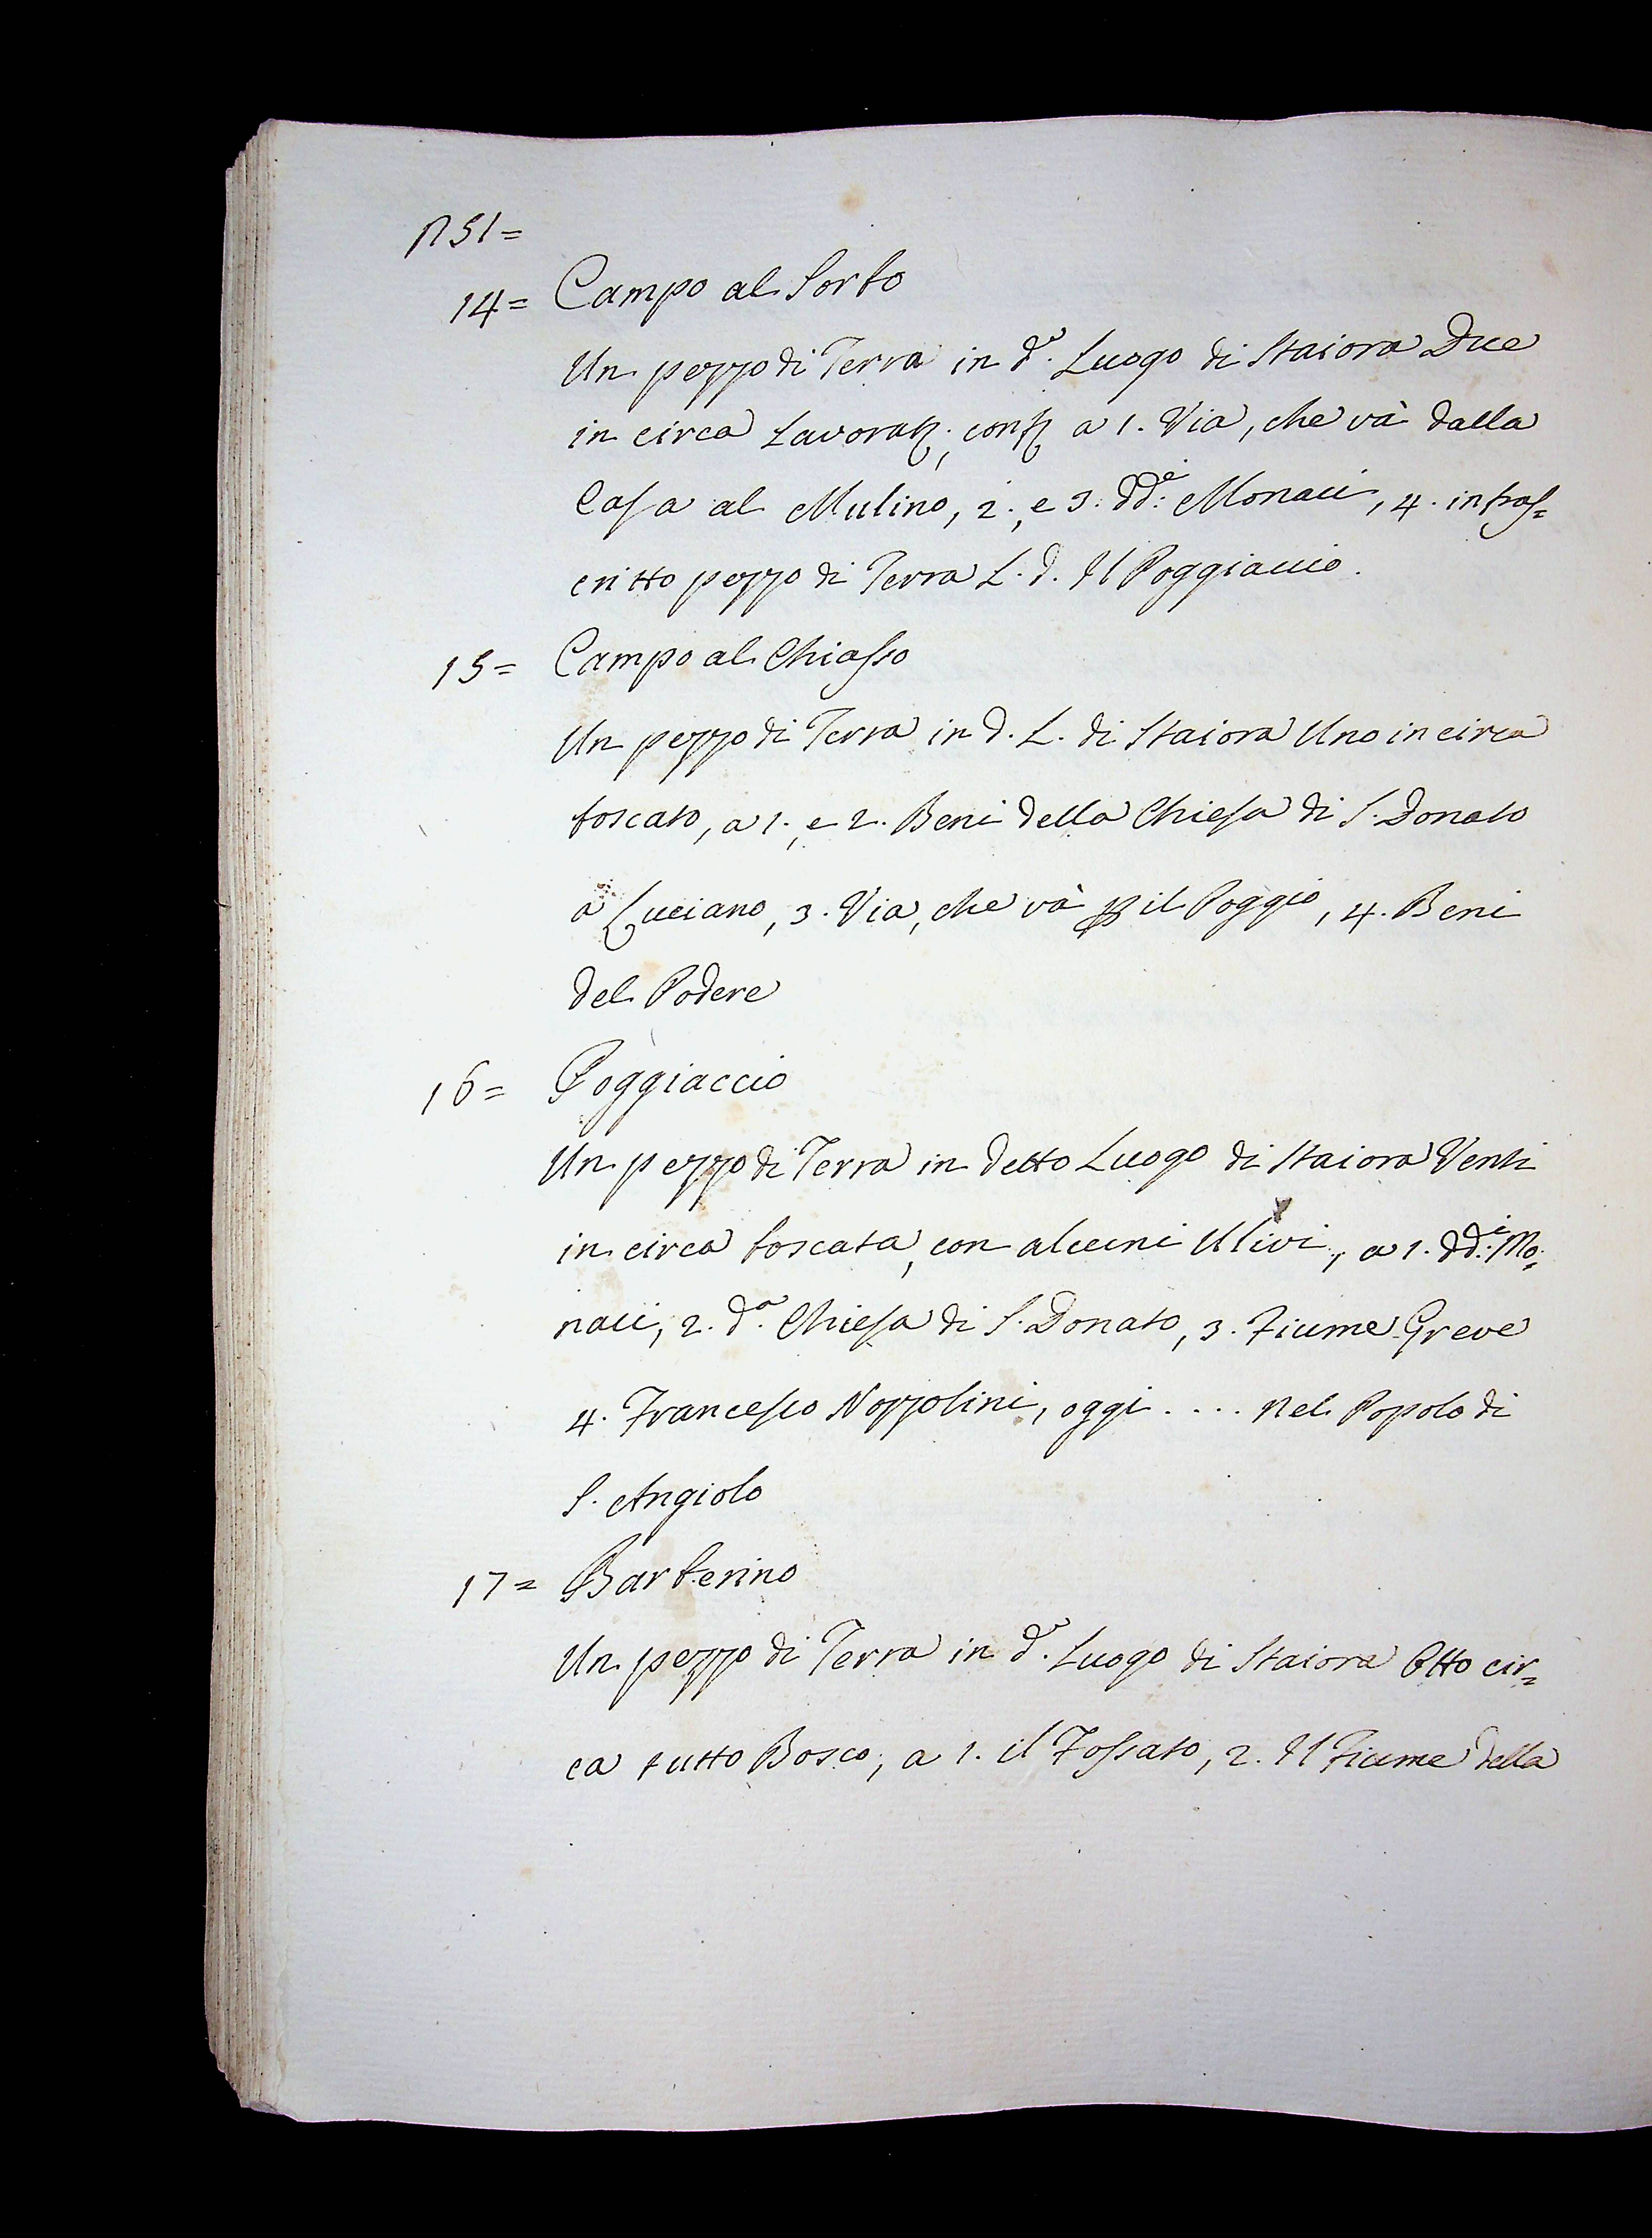 n 51=
14= Campo al Sorbo
Un pezzo di Terra in d.º Luogo di Staiora Due
in circa Lavorat; conf a 1. Via, che và dalla
Casa al Mulino, 2., e 3. dd.i Monaci, 4. infras=
critto pezzo di Terra L. d. Il Poggiaccio.
15= Campo al Chiasso
Un pezzo di Terra in d. L. di Staiora Uno in circa
boscato, a 1., e 2. Beni della Chiesa di S. Donato
a Luciano, 3. Via, che và p il Poggio, 4. Beni
del Podere
16= Poggiaccio
Un pezzo di Terra in detto Luogo di Staiora Venti
in circa boscata, con alcuni Ulivi, a 1. dd.i Mo=
naci, 2. d.a Chiesa di S. Donato, 3. Fiume Greve
4. Francesco Nozzolini, oggi .... nel Popolo di
S. Angiolo
17= Barberino
Un pezzo di Terra in d.º Luogo di Staiora Otto cir=
ca tutto Bosco, a 1. il Fossato, 2. Il Fiume della